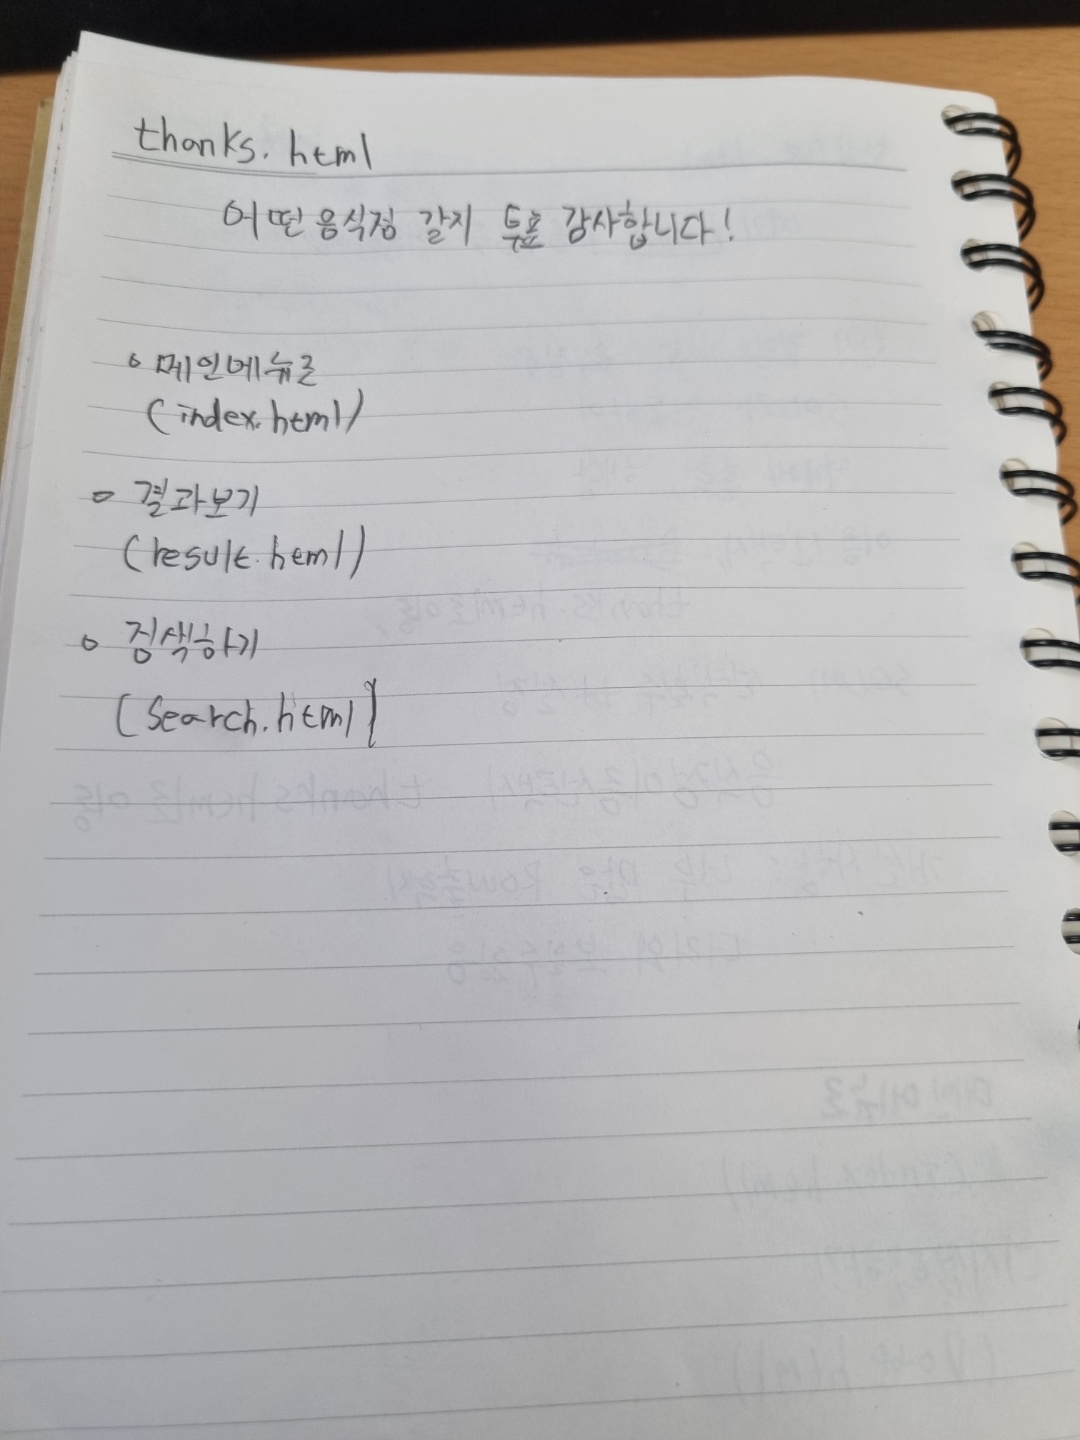 thanks.html
어떤 음식점 갈지 투표 감사합니다!
메인메뉴로
(index.html)
결과보기
(result.html)
검색하기
(Search.html)